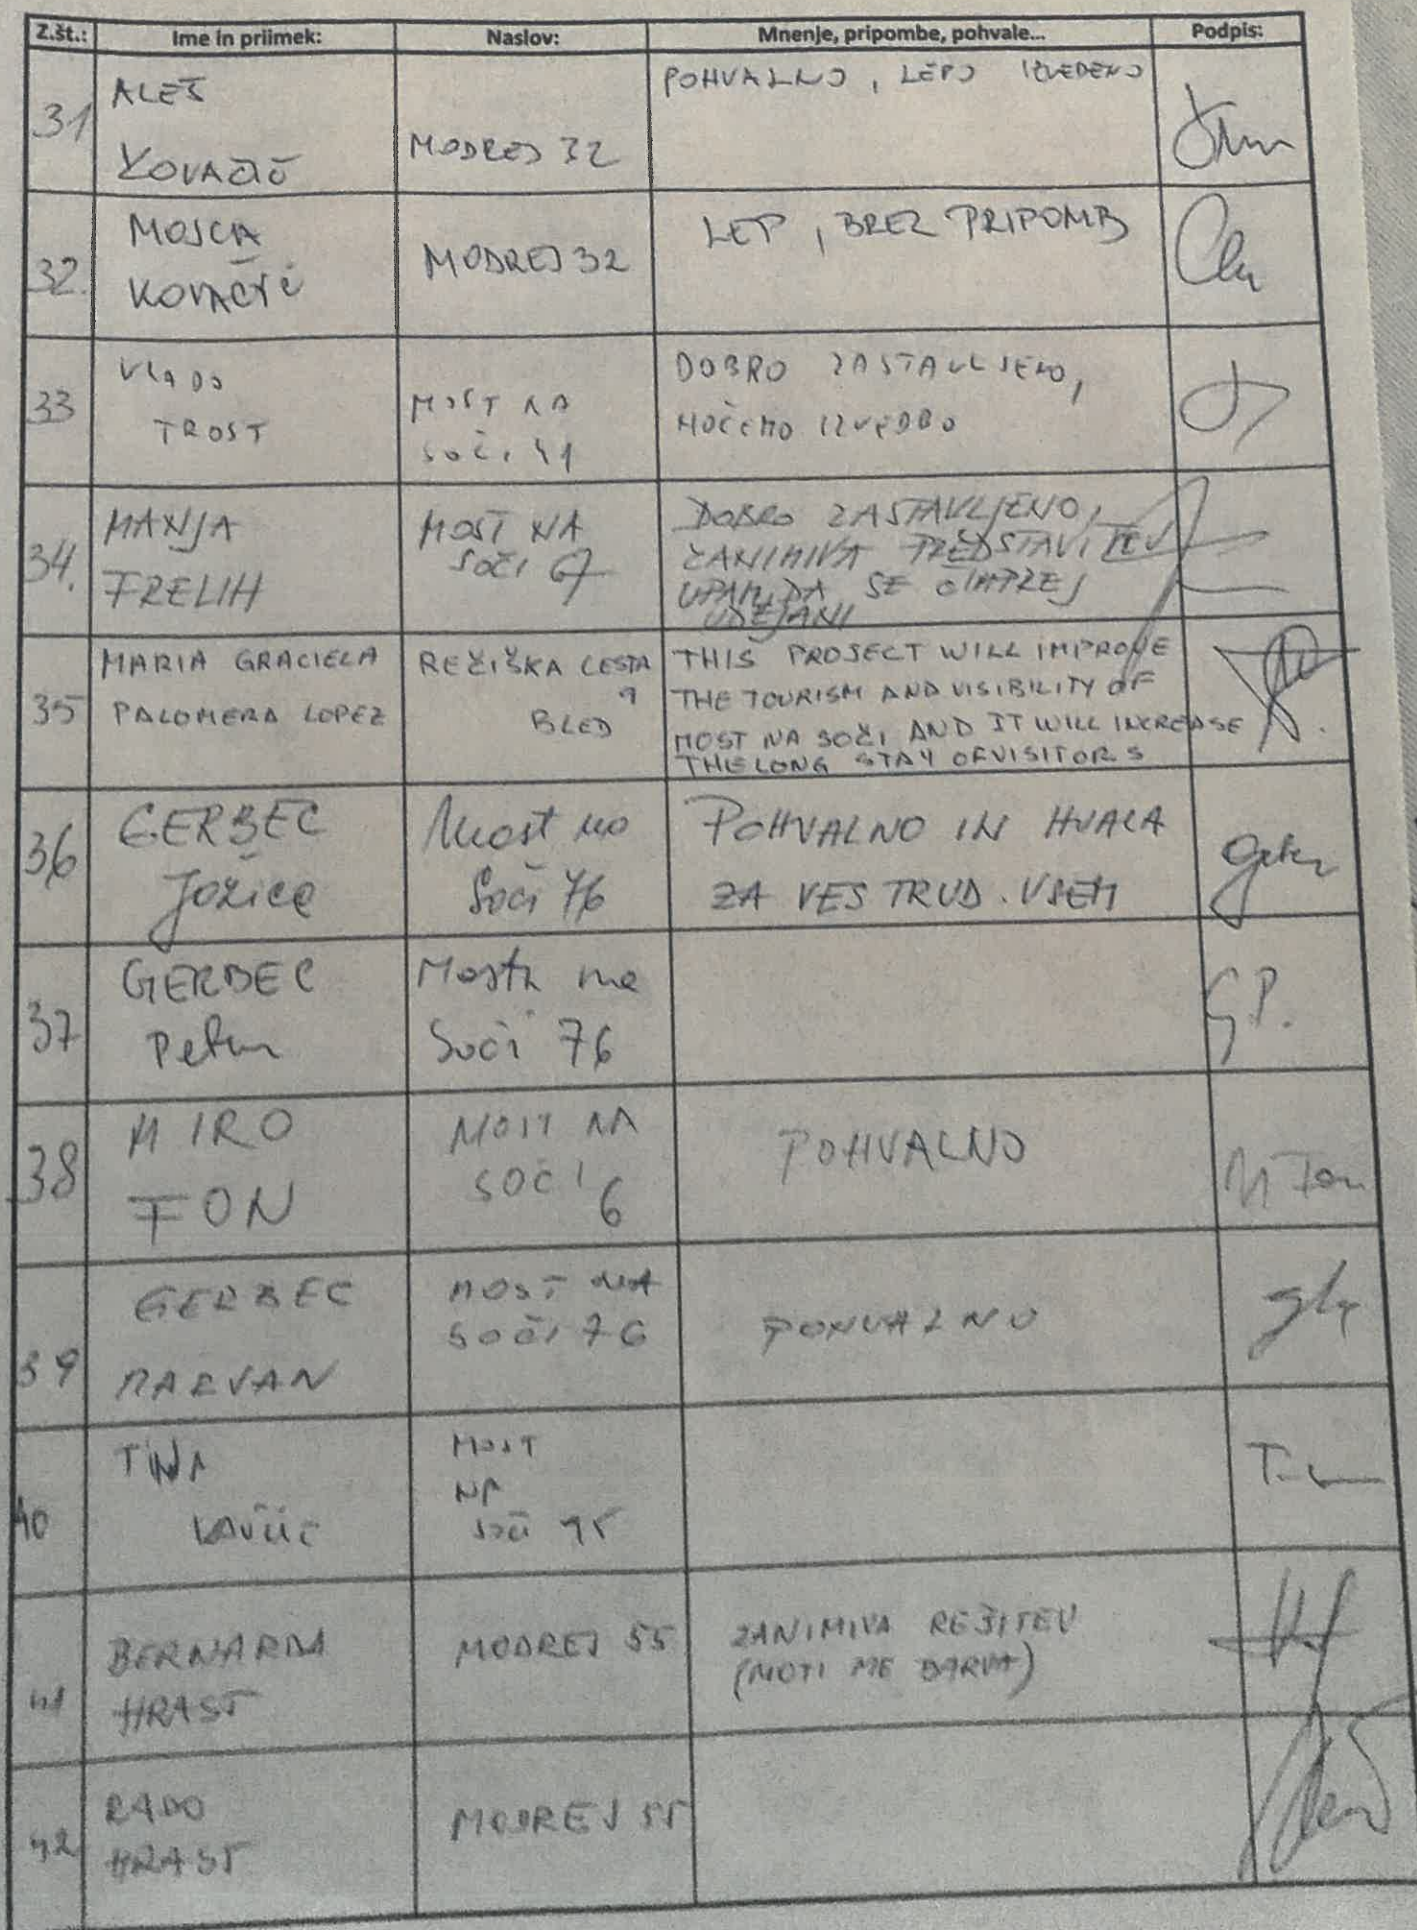 Z.št.: Ime in priimek: Naslov: Mnenje, pripombe, pohvale... Podpis:
31 ALEŠ KOVAČIČ
MODREJ 32
POHVALNO, LEPO IZVEDENO
32. MOJCA
KOVAČIČ
MODREJ 32
LEP, BREZ PRIPOMB
33 VLADO
TROST
MOST NA
SOČI 41
DOBRO ZASTAVLJENO,
HOČEMO IZVEDBO
34. MANJA
FRELIH
MOST NA
SOČI 67
DOBRO ZASTAVLJENO,
ZANIMIVA PREDSTAVITEV
UPAM, DA SE ČIMPREJ
UDEJANI
35 MARIA GRACIELA
PALOMERA LOPEZ
REČIŠKA CESTA
9
BLED
THIS PROJECT WILL IMPROVE
THE TOURISM AND VISIBILITY OF
MOST NA SOČI AND IT WILL INCREASE
THE LONG STAY OF VISITORS
36 GERBEC
Jožica
Most na
Soči 76
POHVALNO IN HVALA
ZA VES TRUD. VSEM
37 GERBEC
Peter
Most na
Soči 76
G.P.
38 MIRO
FON
MOST NA
SOČI 6
POHVALNO
M Fon
39 GERBEC
MARVAN
MOST NA
SOČI 76
POHVALNO
40 TINA
MOST
NA
SOČI 95
41 BERNARDA
HRAST
MODREJ 55
ZANIMIVA REŠITEV
(MOTI ME BARVA)
42 RADO
HRAST
MODREJ 55